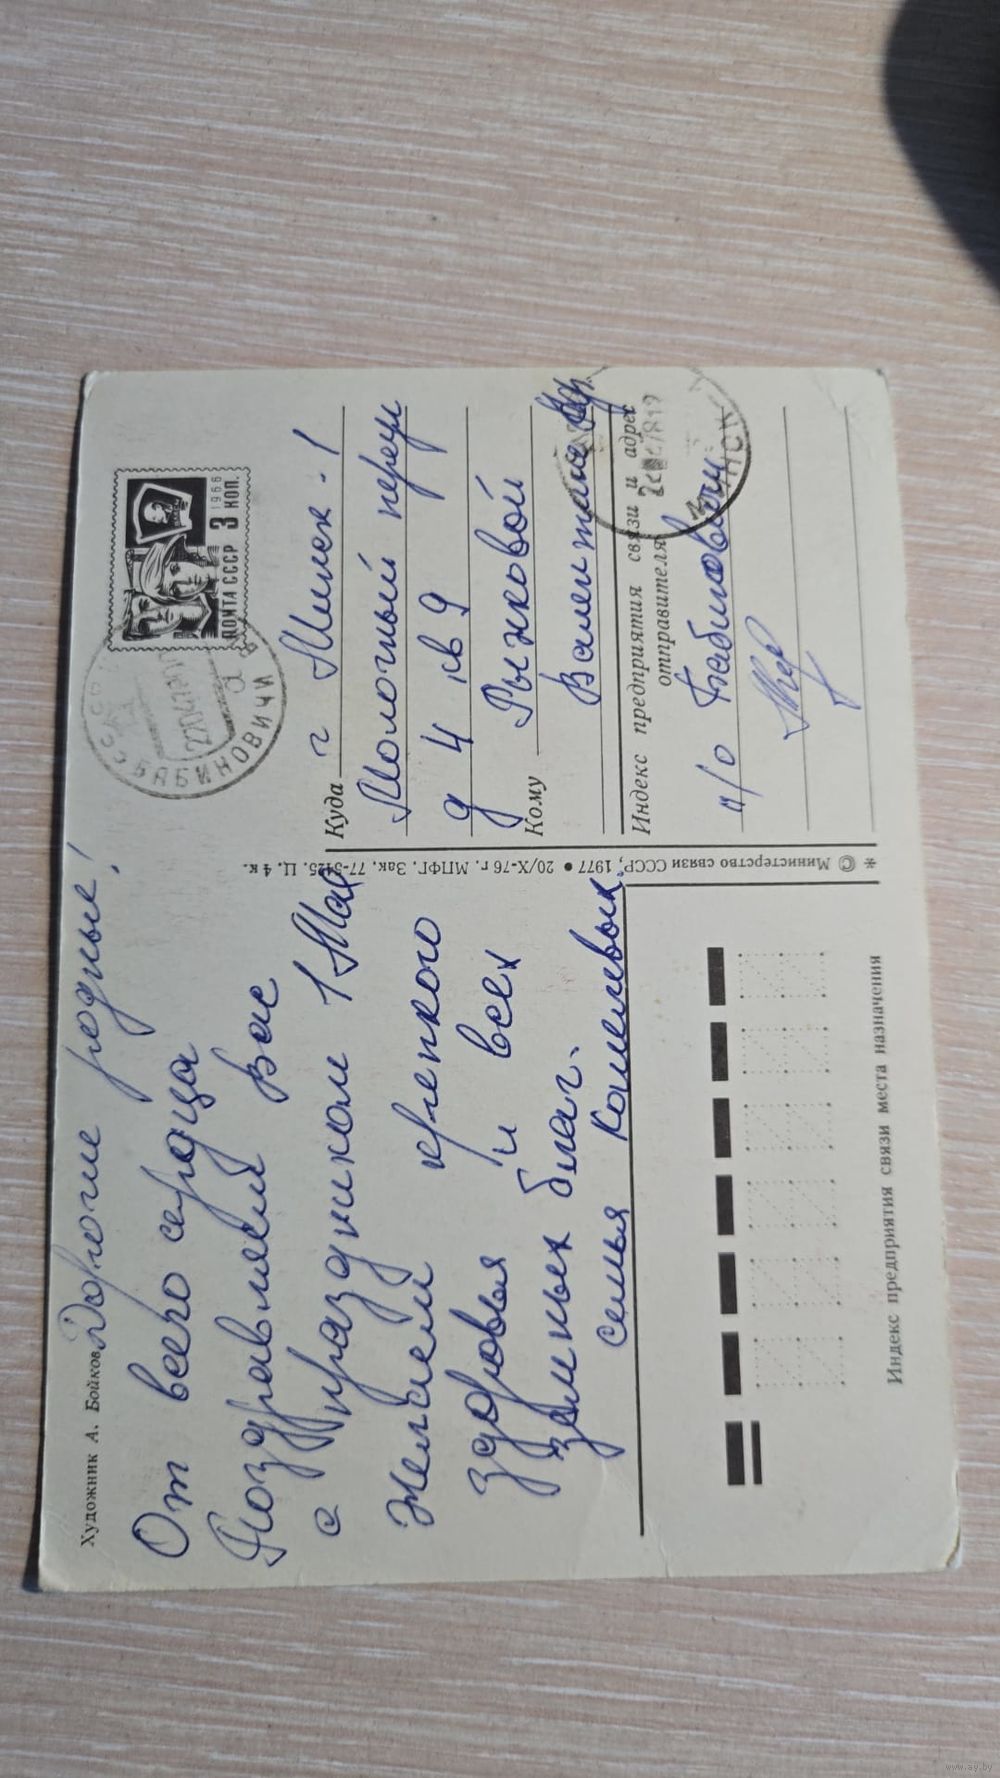 Художник А. Бойков
Дорогие родные!
От всего сердца
Поздравляем Вас
с праздником 1 Мая
Желаем крепкого
здоровья и всех
земных благ.
семья Кошелевых
© Министерство связи СССР, 1977 • 20/X-76 г. МПФГ. Зак. 77-5125. Ц. 4 к.
*
ПОЧТА СССР 3 КОП.
1966
СССР
БАБИНОВИЧИ
а
Куда г Минск-1
Молочный переул
д 4 кв 9
Кому Рыжковой
Валентине
Индекс предприятия связи и адрес
отправителя
п/о Бабиновичи
МИНСК
Индекс предприятия связи места назначения
www.ay.by